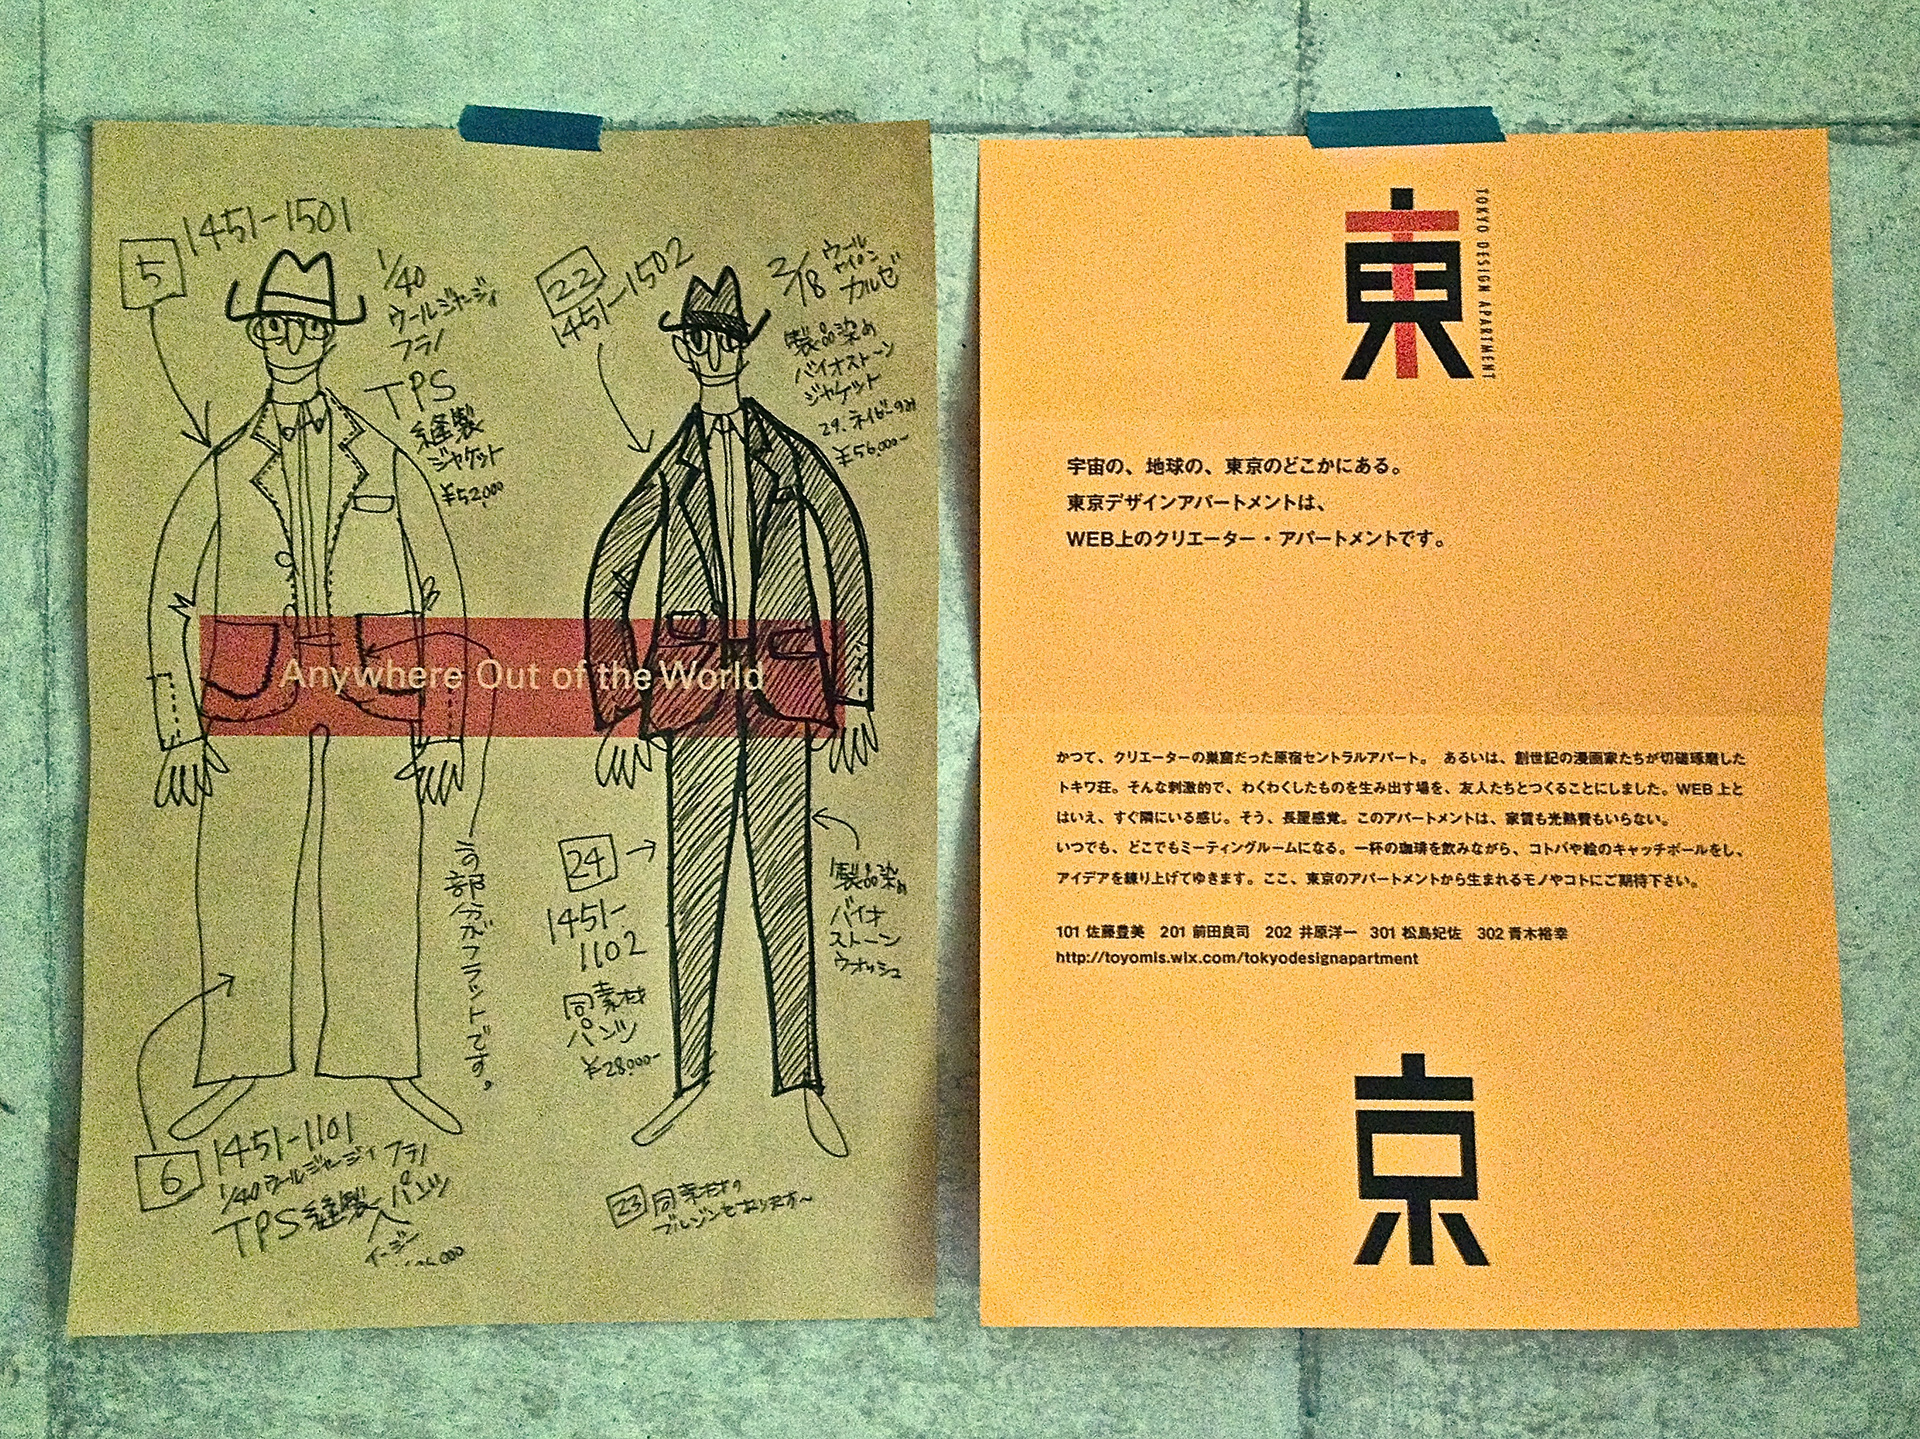 5
1451-1501
1/40
ウールジャージィ
フラノ
TPS
縫製
ジャケット
¥52,000
22
1451-1502
2/8 ウール
カルゼ
製品染め
バイオストーン
ジャケット
¥56,000-
Anywhere Out of the World
この部分がフラットです。
24
1451-
1102
同素材
パンツ
¥28,000-
製品染め
バイオ
ストーン
ウォッシュ
6
1451-1101
1/40 ウールジャージィ フラノ
TPS縫製 パンツ
イージー
23 同素材の
ブルゾンもあります〜
東
TOKYO DESIGN APARTMENT
宇宙の、地球の、東京のどこかにある。
東京デザインアパートメントは、
WEB上のクリエーター・アパートメントです。
かつて、クリエーターの巣窟だった原宿セントラルアパート。 あるいは、創世記の漫画家たちが切磋琢磨した
トキワ荘。そんな刺激的で、わくわくしたものを生み出す場を、友人たちとつくることにしました。WEB 上と
はいえ、すぐ隣にいる感じ。そう、長屋感覚。このアパートメントは、家賃も光熱費もいらない。
いつでも、どこでもミーティングルームになる。一杯の珈琲を飲みながら、コトバや絵のキャッチボールをし、
アイデアを練り上げてゆきます。ここ、東京のアパートメントから生まれるモノやコトにご期待下さい。
101 佐藤豊美 201 前田良司 202 井原洋一 301 松島妃佐 302 青木裕幸
http://toyomis.wix.com/tokyodesignapartment
京